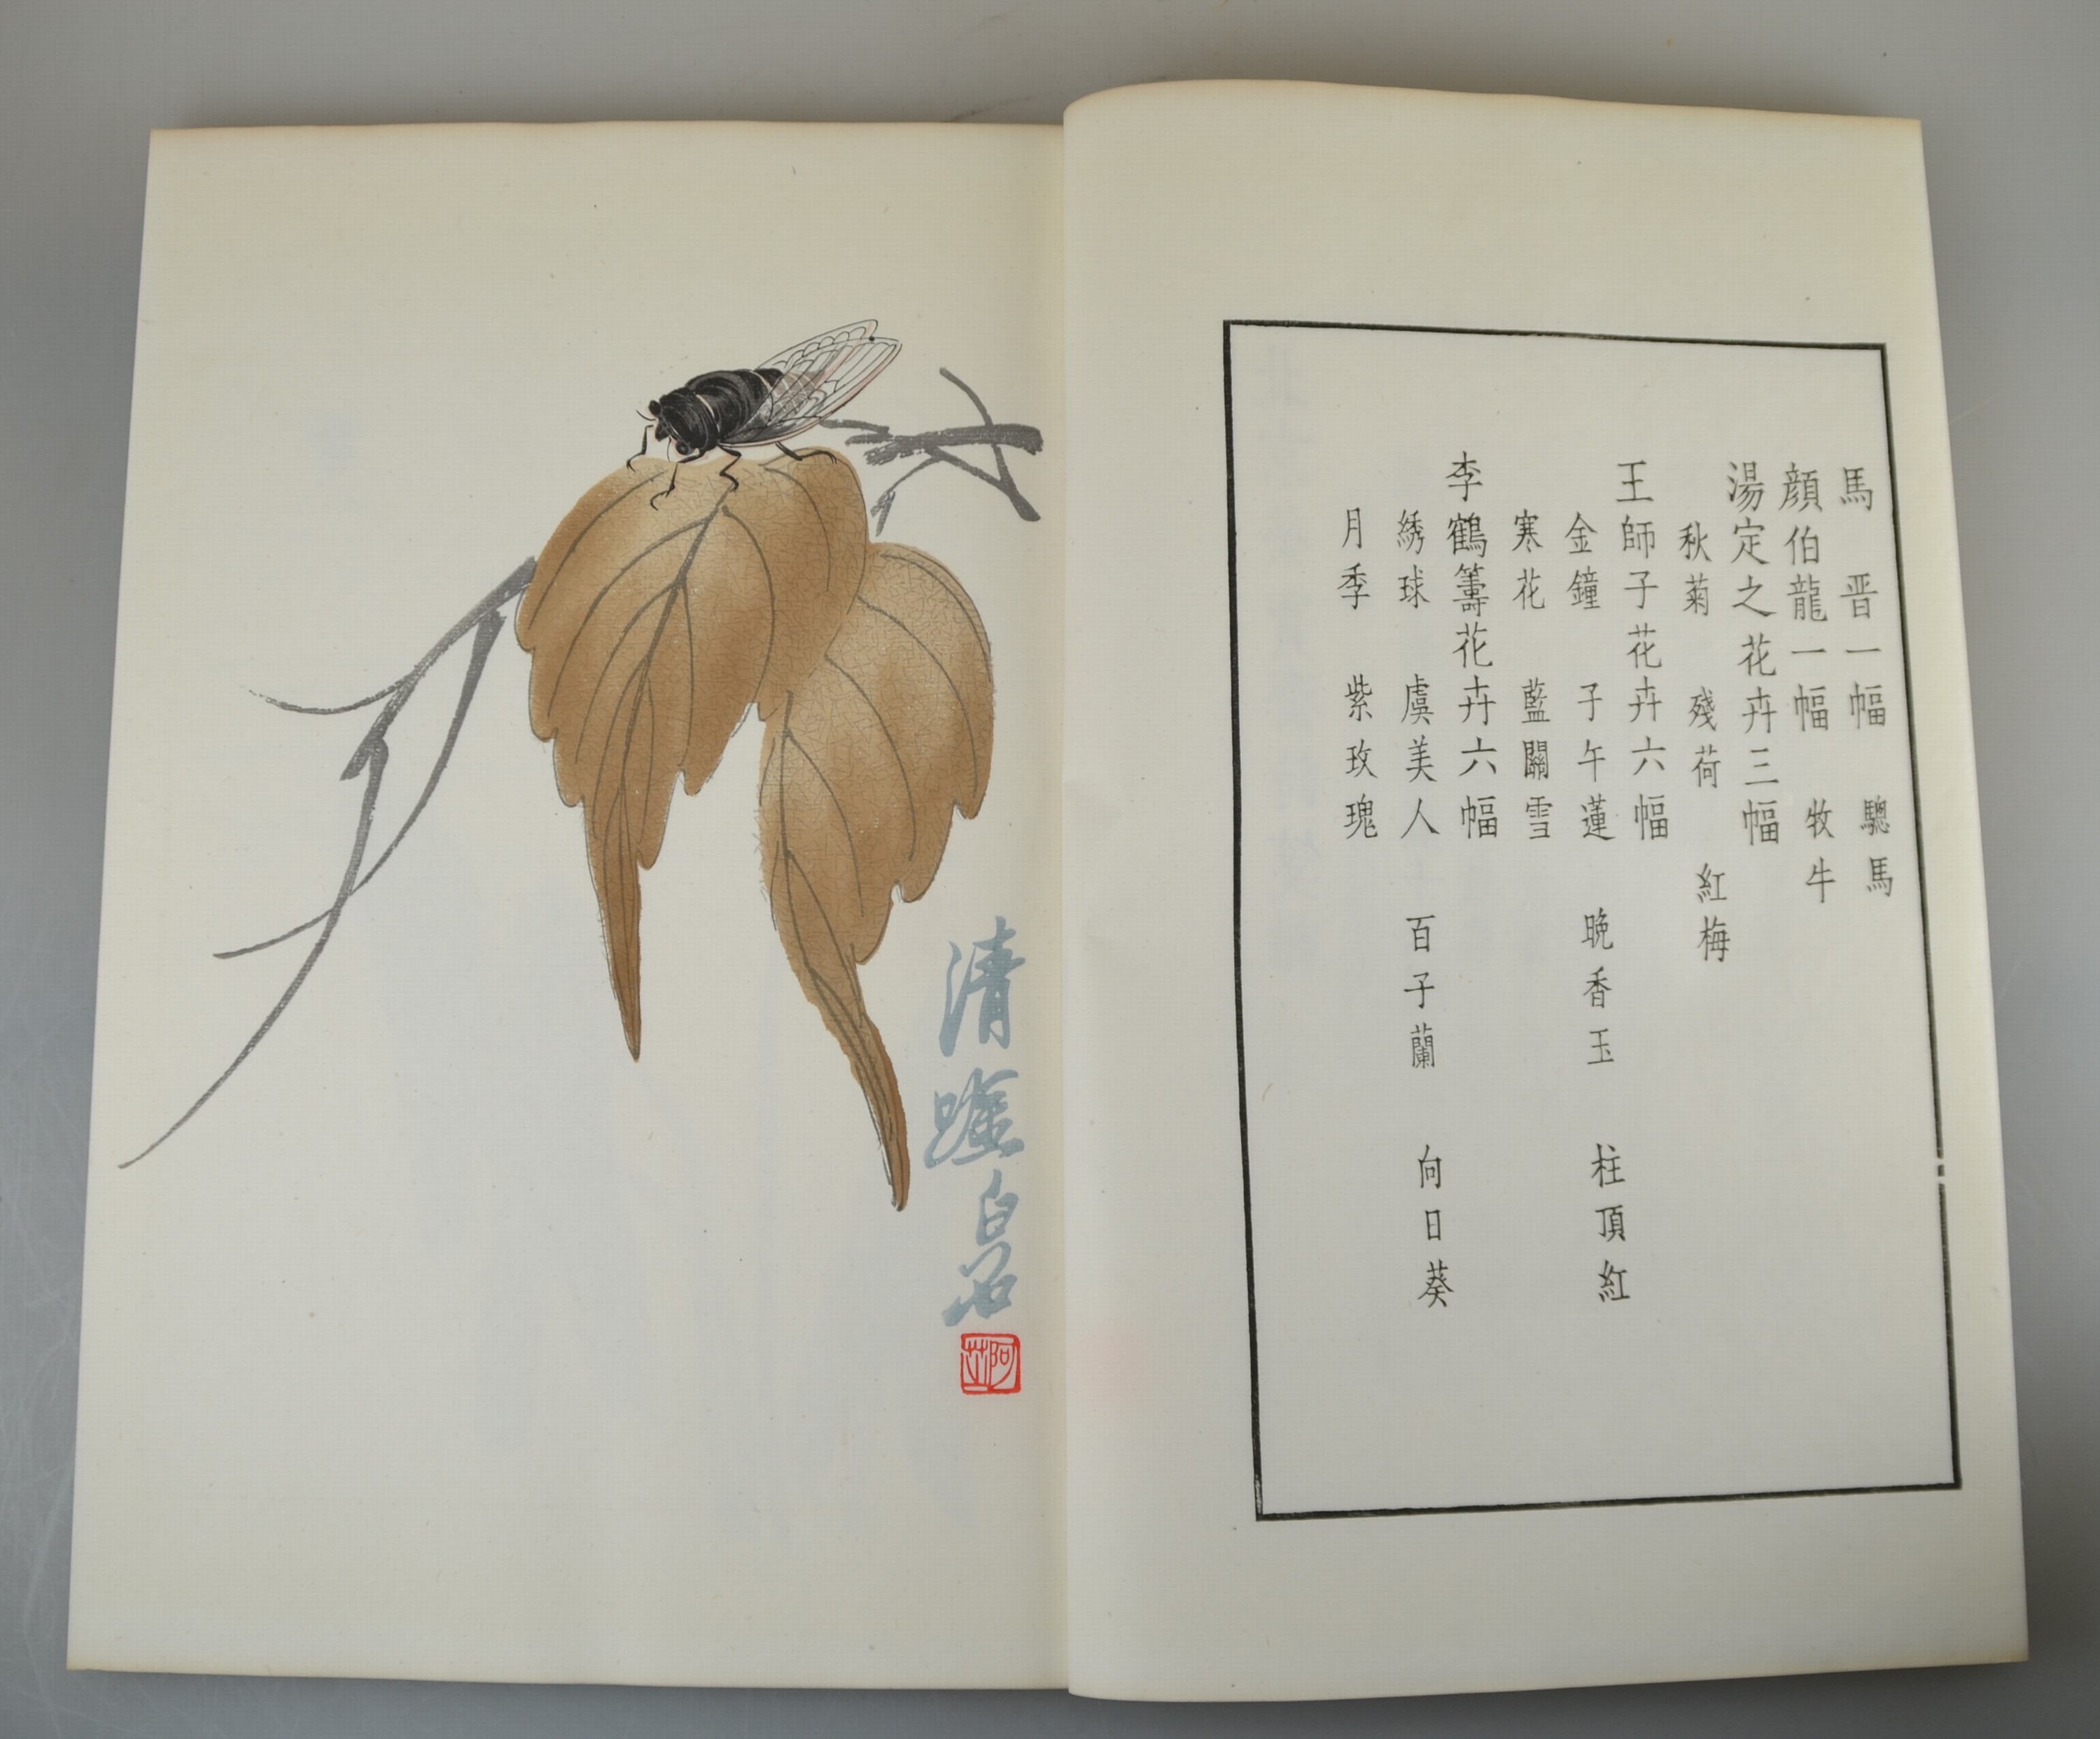 馬 晋一幅 驄馬
顏伯龍一幅 牧牛
湯定之花卉三幅
秋菊 殘荷 紅梅
王師子花卉六幅
金鐘 子午蓮 晚香玉 柱頂紅
寒花 藍關雪
李鶴籌花卉六幅
綉球 虞美人 百子蘭 向日葵
月季 紫玫瑰
清
白石
阿芝